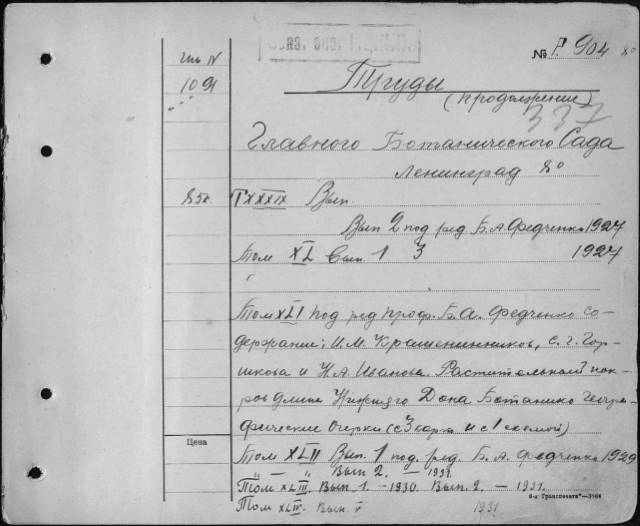 № P. 904 8°
Шк IV
109
Труды
(продолжение)
337
Главного Ботанического Сада
Ленинград 8°
85к. Т XXXIX Вып.
Вып 2 под ред. Б. А. Федченко 1927
Том XL Вып. 1 3 1927
Том XLI под ред проф. Б. А. Федченко Со-
держание: И. М. Крашенинников, С. Г. Гор-
шкова и Н. А. Иванова. Растительный пок-
ров Нижнего Дона Ботанико Геогра-
фические Очерки (с 3 карт и с 1 схемой)
Цена
Том XLII Вып. 1 под. ред. Б. А. Федченко 1929
" — " Вып 2. — 1931.
Том XLIII. Вып. 1. — 1930. Вып. 2. — 1931.
Том XLIV. Вып. 1931
6-я Транспечать—3168